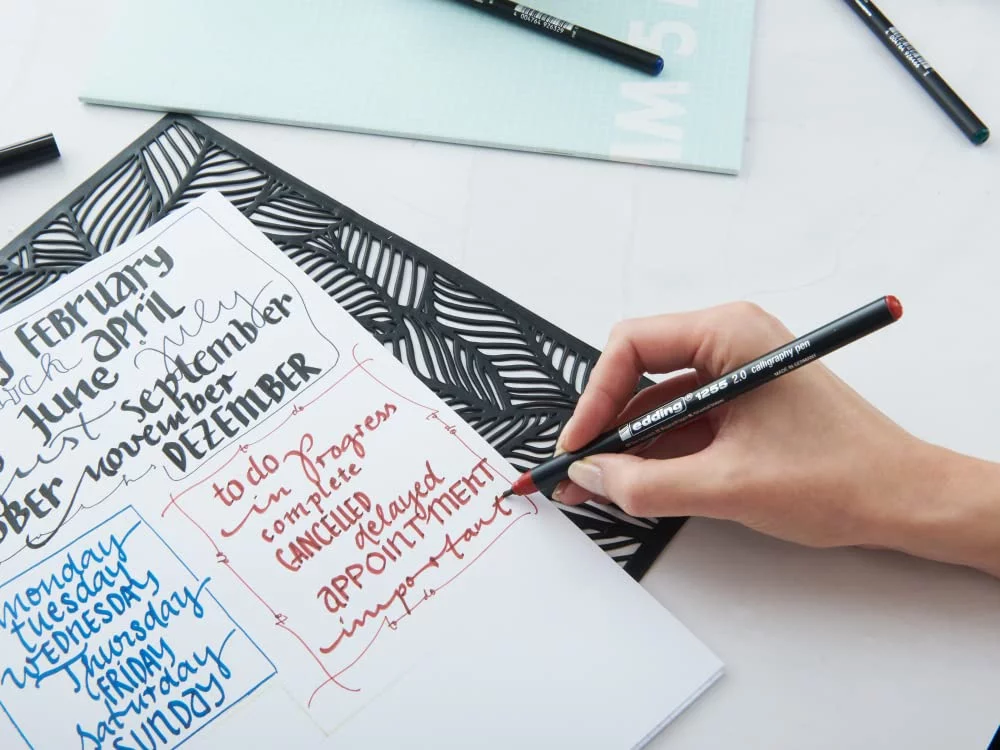 FEBRUARY
June april july
september
november
DEZEMBER
monday
tuesday
WEDNESDAY
Thursday
FRIDAY
saturday
SUNDAY
to do
in progress
complete
CANCELLED
delayed
APPOINTMENT
important
edding 1255 2.0 calligraphy pen
MADE IN GERMANY